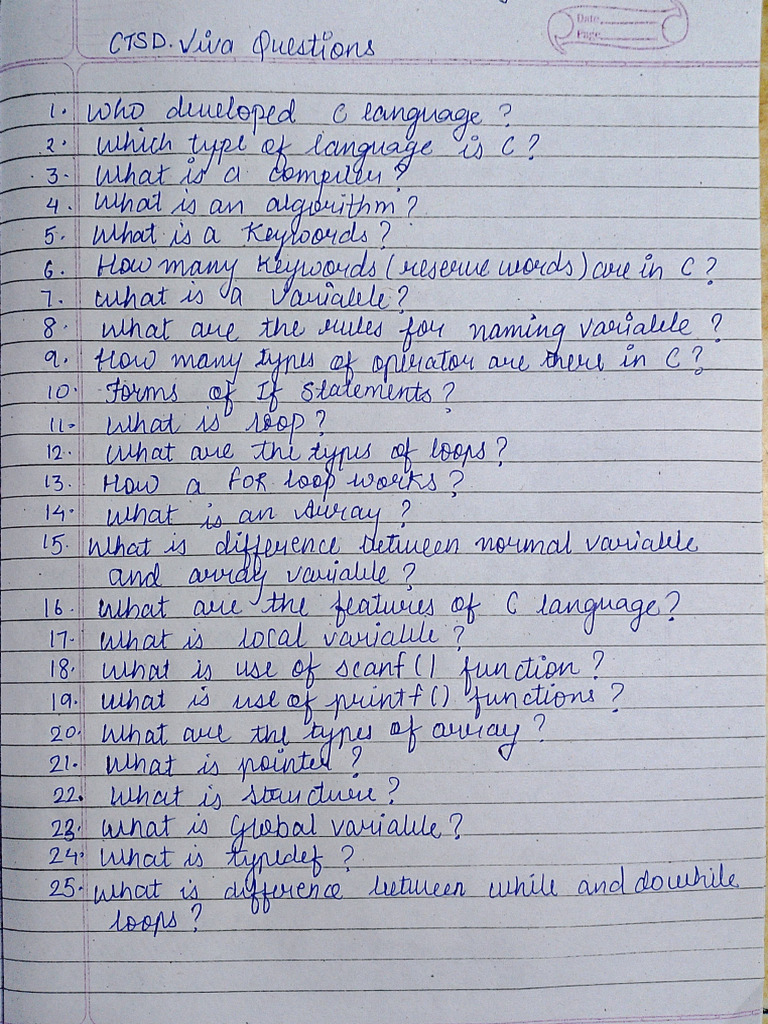 Date
Page
CTSD. Viva Questions
1. Who developed C language?
2. Which type of language is C?
3. What is a compiler?
4. What is an algorithm?
5. What is a Keywoords?
6. How many Keywords (reserve words) are in C?
7. What is a Variable?
8. What are the rules for naming variable?
9. How many types of operator are there in C?
10. Forms of If Statements?
11. What is loop?
12. What are the types of loops?
13. How a FOR loop works?
14. What is an Array?
15. What is difference between normal variable
and array variable?
16. What are the features of C language?
17. What is local variable?
18. What is use of scanf() function?
19. What is use of printf() functions?
20. What are the types of array?
21. What is pointer?
22. What is structure?
23. What is Global variable?
24. What is typedef?
25. What is difference between while and dowhile
loops?